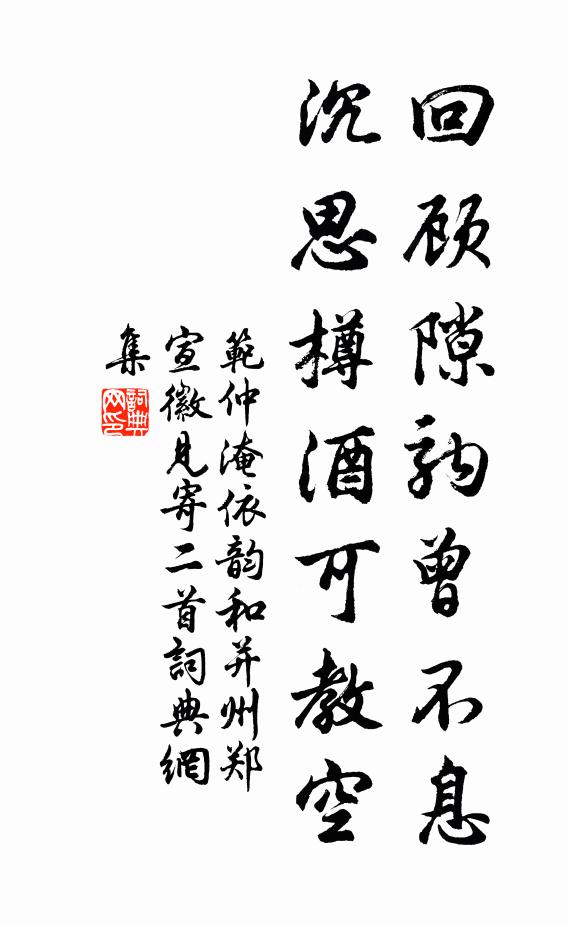 回顾隙驹曾不息
沉思樽酒可教空
範仲淹依韵和并州郑
宣徽見寄二首詞典網
集
詞典
网印